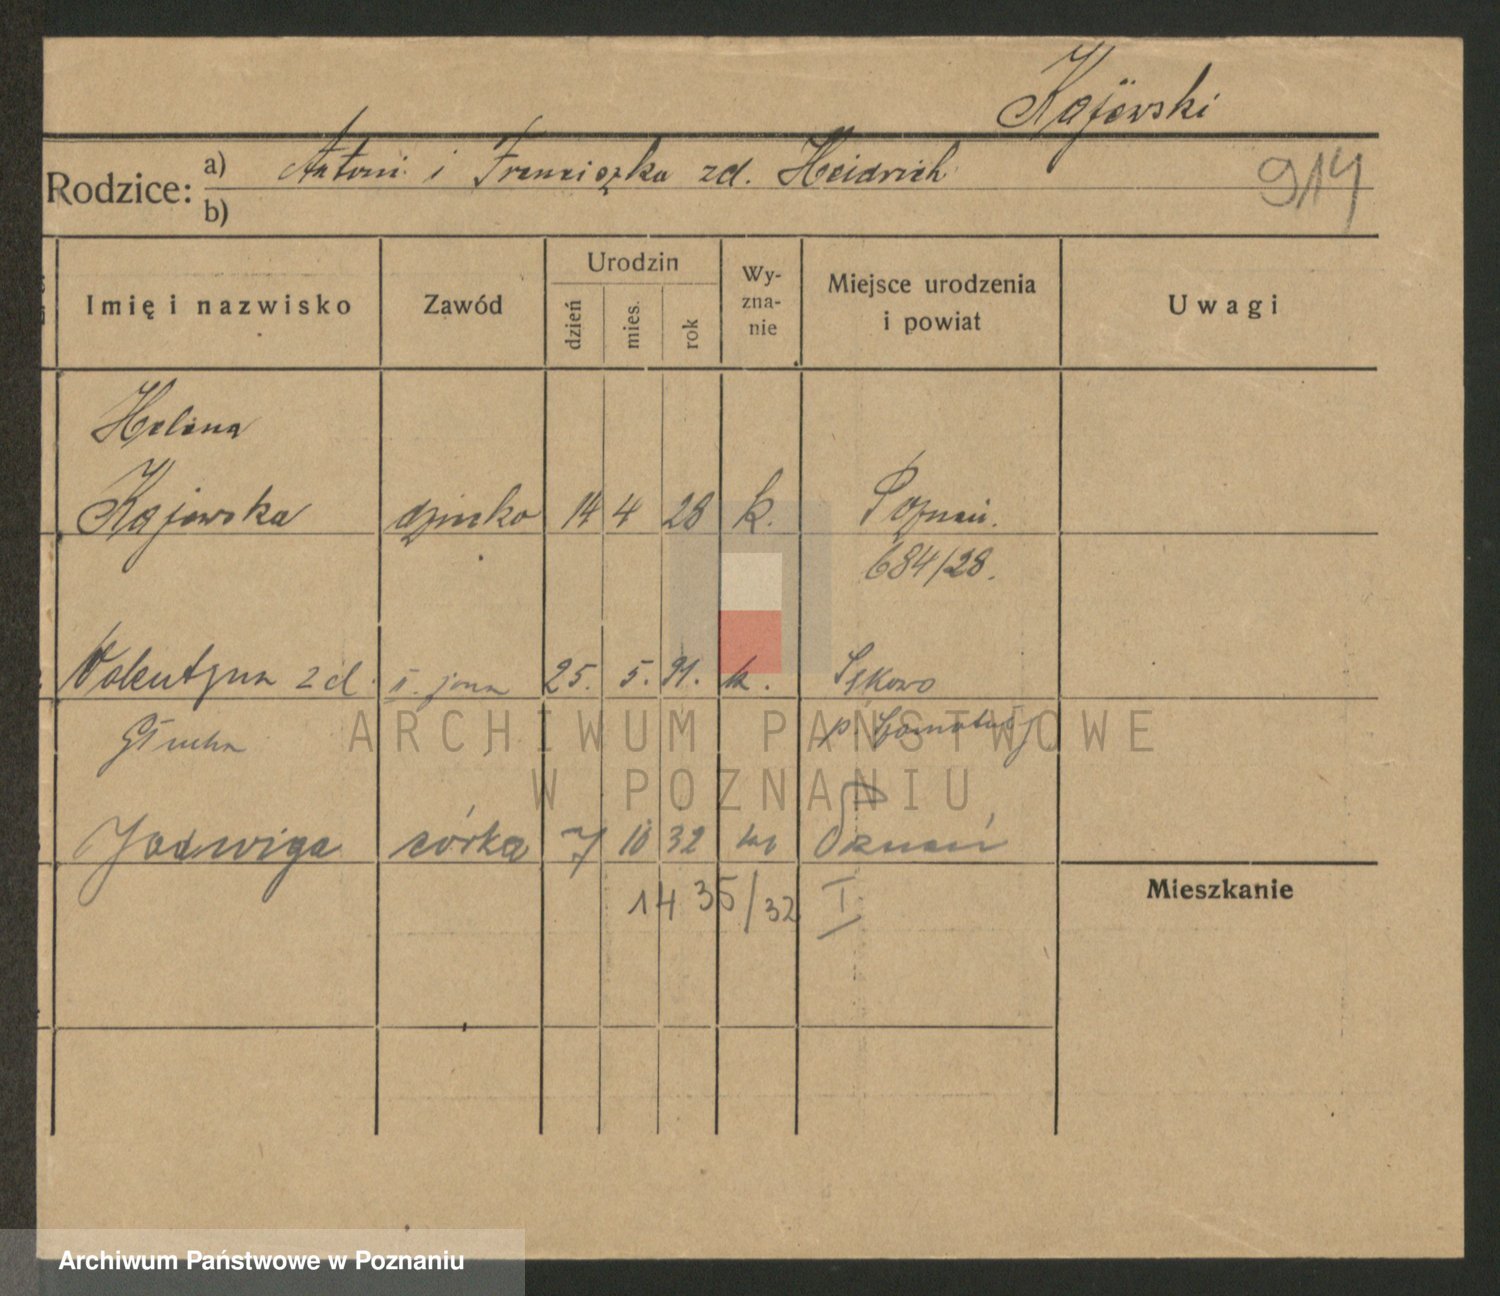 Kajewski
Rodzice: a) Antoni i Franciszka zd. Heidrich
914
b)
Imię i nazwisko Zawód Urodzin dzień mies. rok Wy-zna-nie Miejsce urodzenia i powiat Uwagi
Helena
Kajewska dziecko 14 4 28 k. Poznań.
684/28.
Walentyna zd. II. żona 25. 5. 91. k. Sękowo
Głucha p. Szamotuły
Jadwiga córka 7 10 32 Poznań
1435/32 I
Mieszkanie
ARCHIWUM PAŃSTWOWE
W POZNANIU
Archiwum Państwowe w Poznaniu